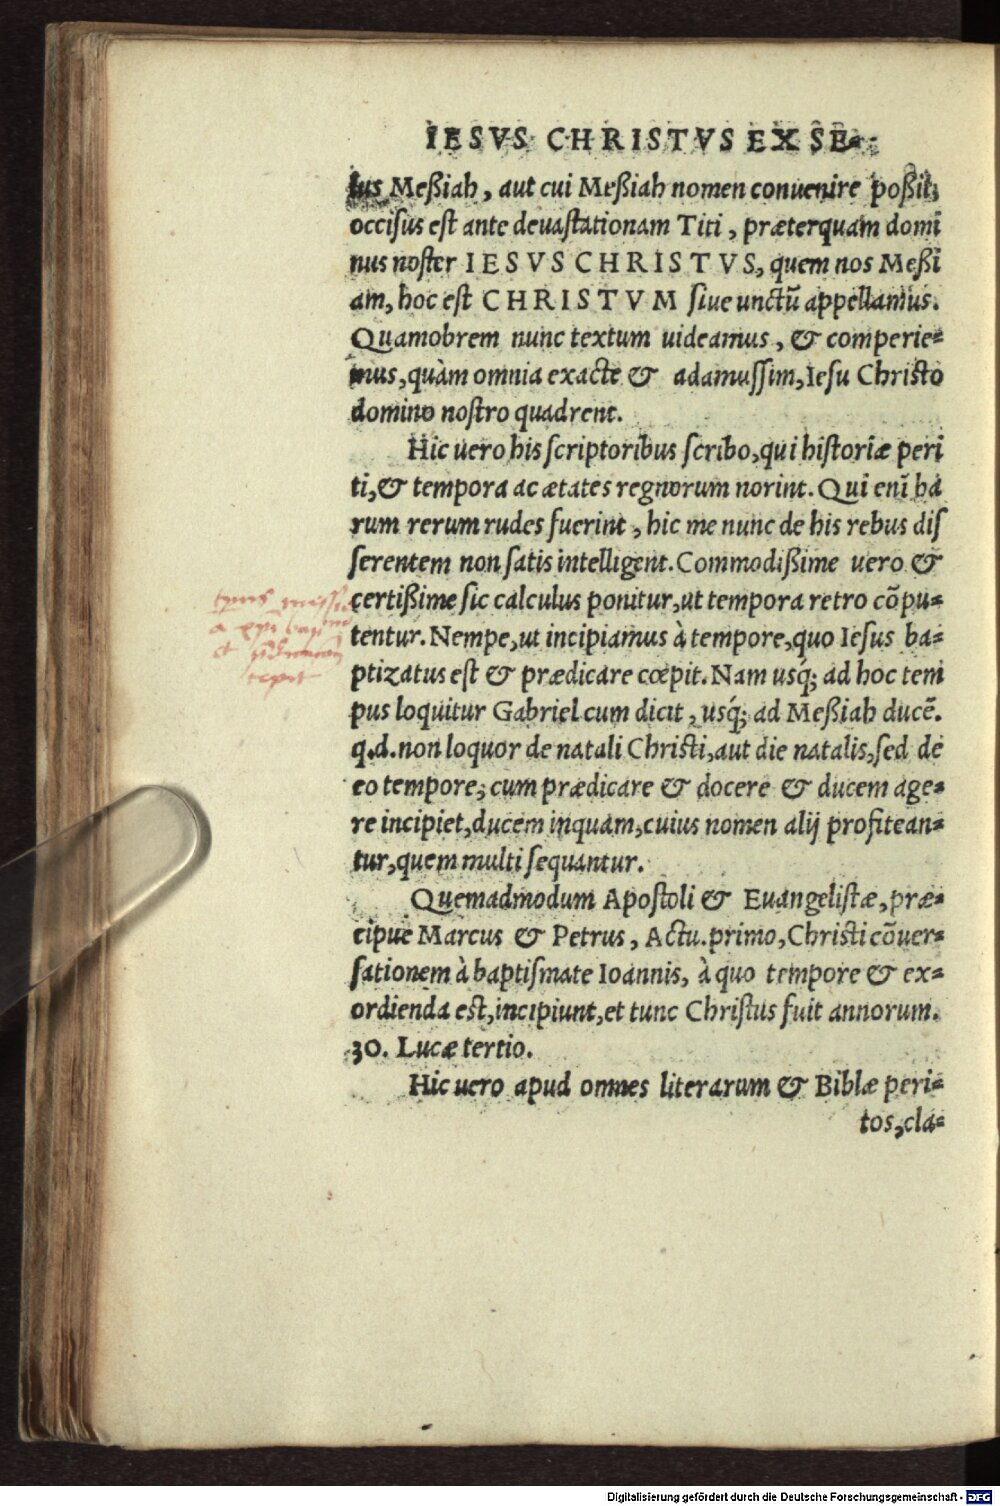 IESVS CHRISTVS EX SE⸗
lus Meßiah, aut cui Meßiah nomen conuenire poßit,
occisus est ante deuastationam Titi, præterquam domi
nus noster IESVS CHRISTVS, quem nos Meßi
am, hoc est CHRISTVM siue unctū appellamus.
Quamobrem nunc textum uideamus, & comperie⸗
mus, quàm omnia exacte & adamussim, Iesu Christo
domino nostro quadrent.
Hic uero his scriptoribus scribo, qui historiæ peri
ti, & tempora ac ætates regnorum norint. Qui enī ha
rum rerum rudes fuerint, hic me nunc de his rebus dis
serentem non satis intelligent. Commodißime uero &
certißime sic calculus ponitur, ut tempora retro cōpu⸗
tentur. Nempe, ut incipiamus à tempore, quo Iesus ba⸗
ptizatus est & prædicare cœpit. Nam usq́; ad hoc tem
pus loquitur Gabriel cum dicit, usq́; ad Meßiah ducē.
q.d. non loquor de natali Christi, aut die natalis, sed de
eo tempore, cum prædicare & docere & ducem age⸗
re incipiet, ducem inquam, cuius nomen alij profitean⸗
tur, quem multi sequantur.
Quemadmodum Apostoli & Euangelistæ, præ⸗
cipue Marcus & Petrus, Actu. primo, Christi cōuer⸗
sationem à baptismate Ioannis, à quo tempore & ex⸗
ordienda est, incipiunt, et tunc Christus fuit annorum.
30. Lucæ tertio.
Hic uero apud omnes literarum & Biblæ peri⸗
tos, cla⸗
Digitalisierung gefördert durch die Deutsche Forschungsgemeinschaft - DFG